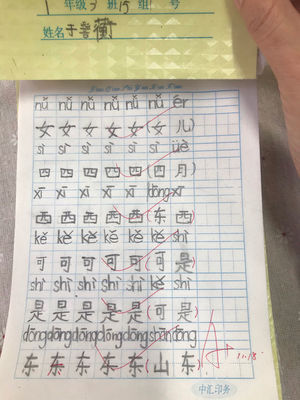 1 年级3 班15组 号
姓名
nǚ nǚ nǚ nǚ nǚ nǚ ér
女 女 女 女 女(女 儿)
sì sì sì sì sì sì yuè
四 四 四 四 四(四 月)
xī xī xī xī xī dōng xī
西 西 西 西 西(东 西)
kě kě kě kě kě kě shì
可 可 可 可 可(可 是)
shì shì shì shì shì kě shì
是 是 是 是 是(可 是)
dōng dōng dōng dōng dōng shān dōng
东 东 东 东 东(山 东)
11.18.
中汇印务